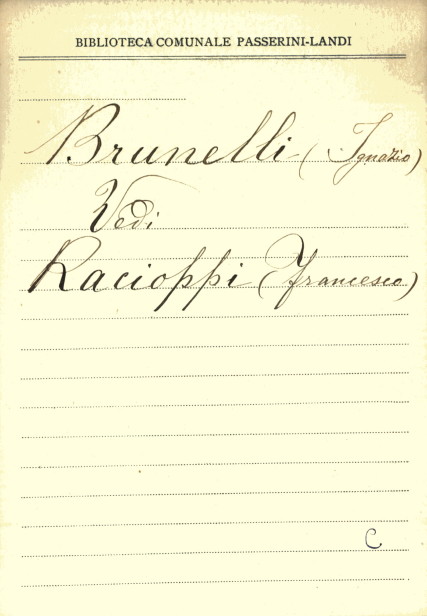 BIBLIOTECA COMUNALE PASSERINI-LANDI
Brunelli (Ignazio)
Vedi
Racioppi (Francesco)
C